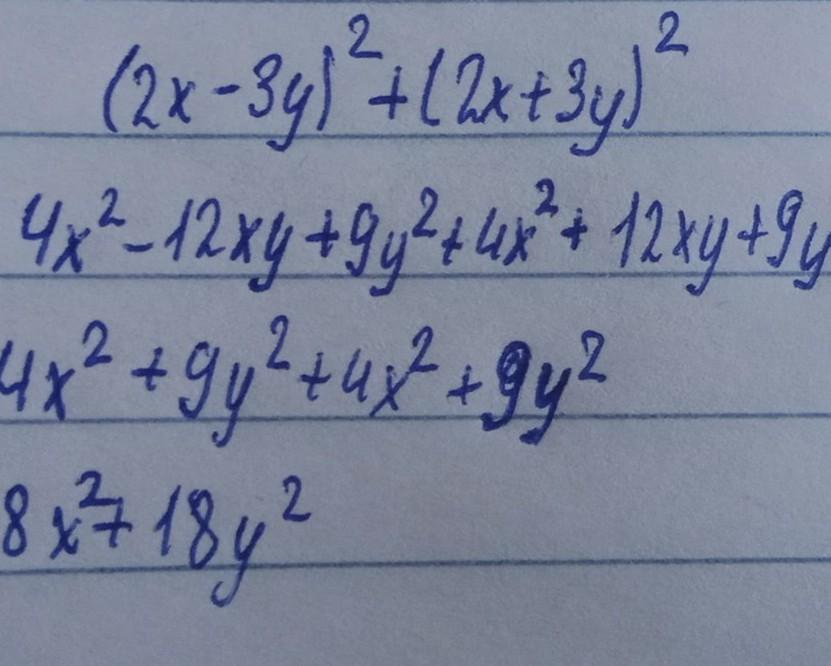 (2x-3y)²+(2x+3y)²
4x²-12xy+9y²+4x²+12xy+9y
4x²+9y²+4x²+9y²
8x²+18y²